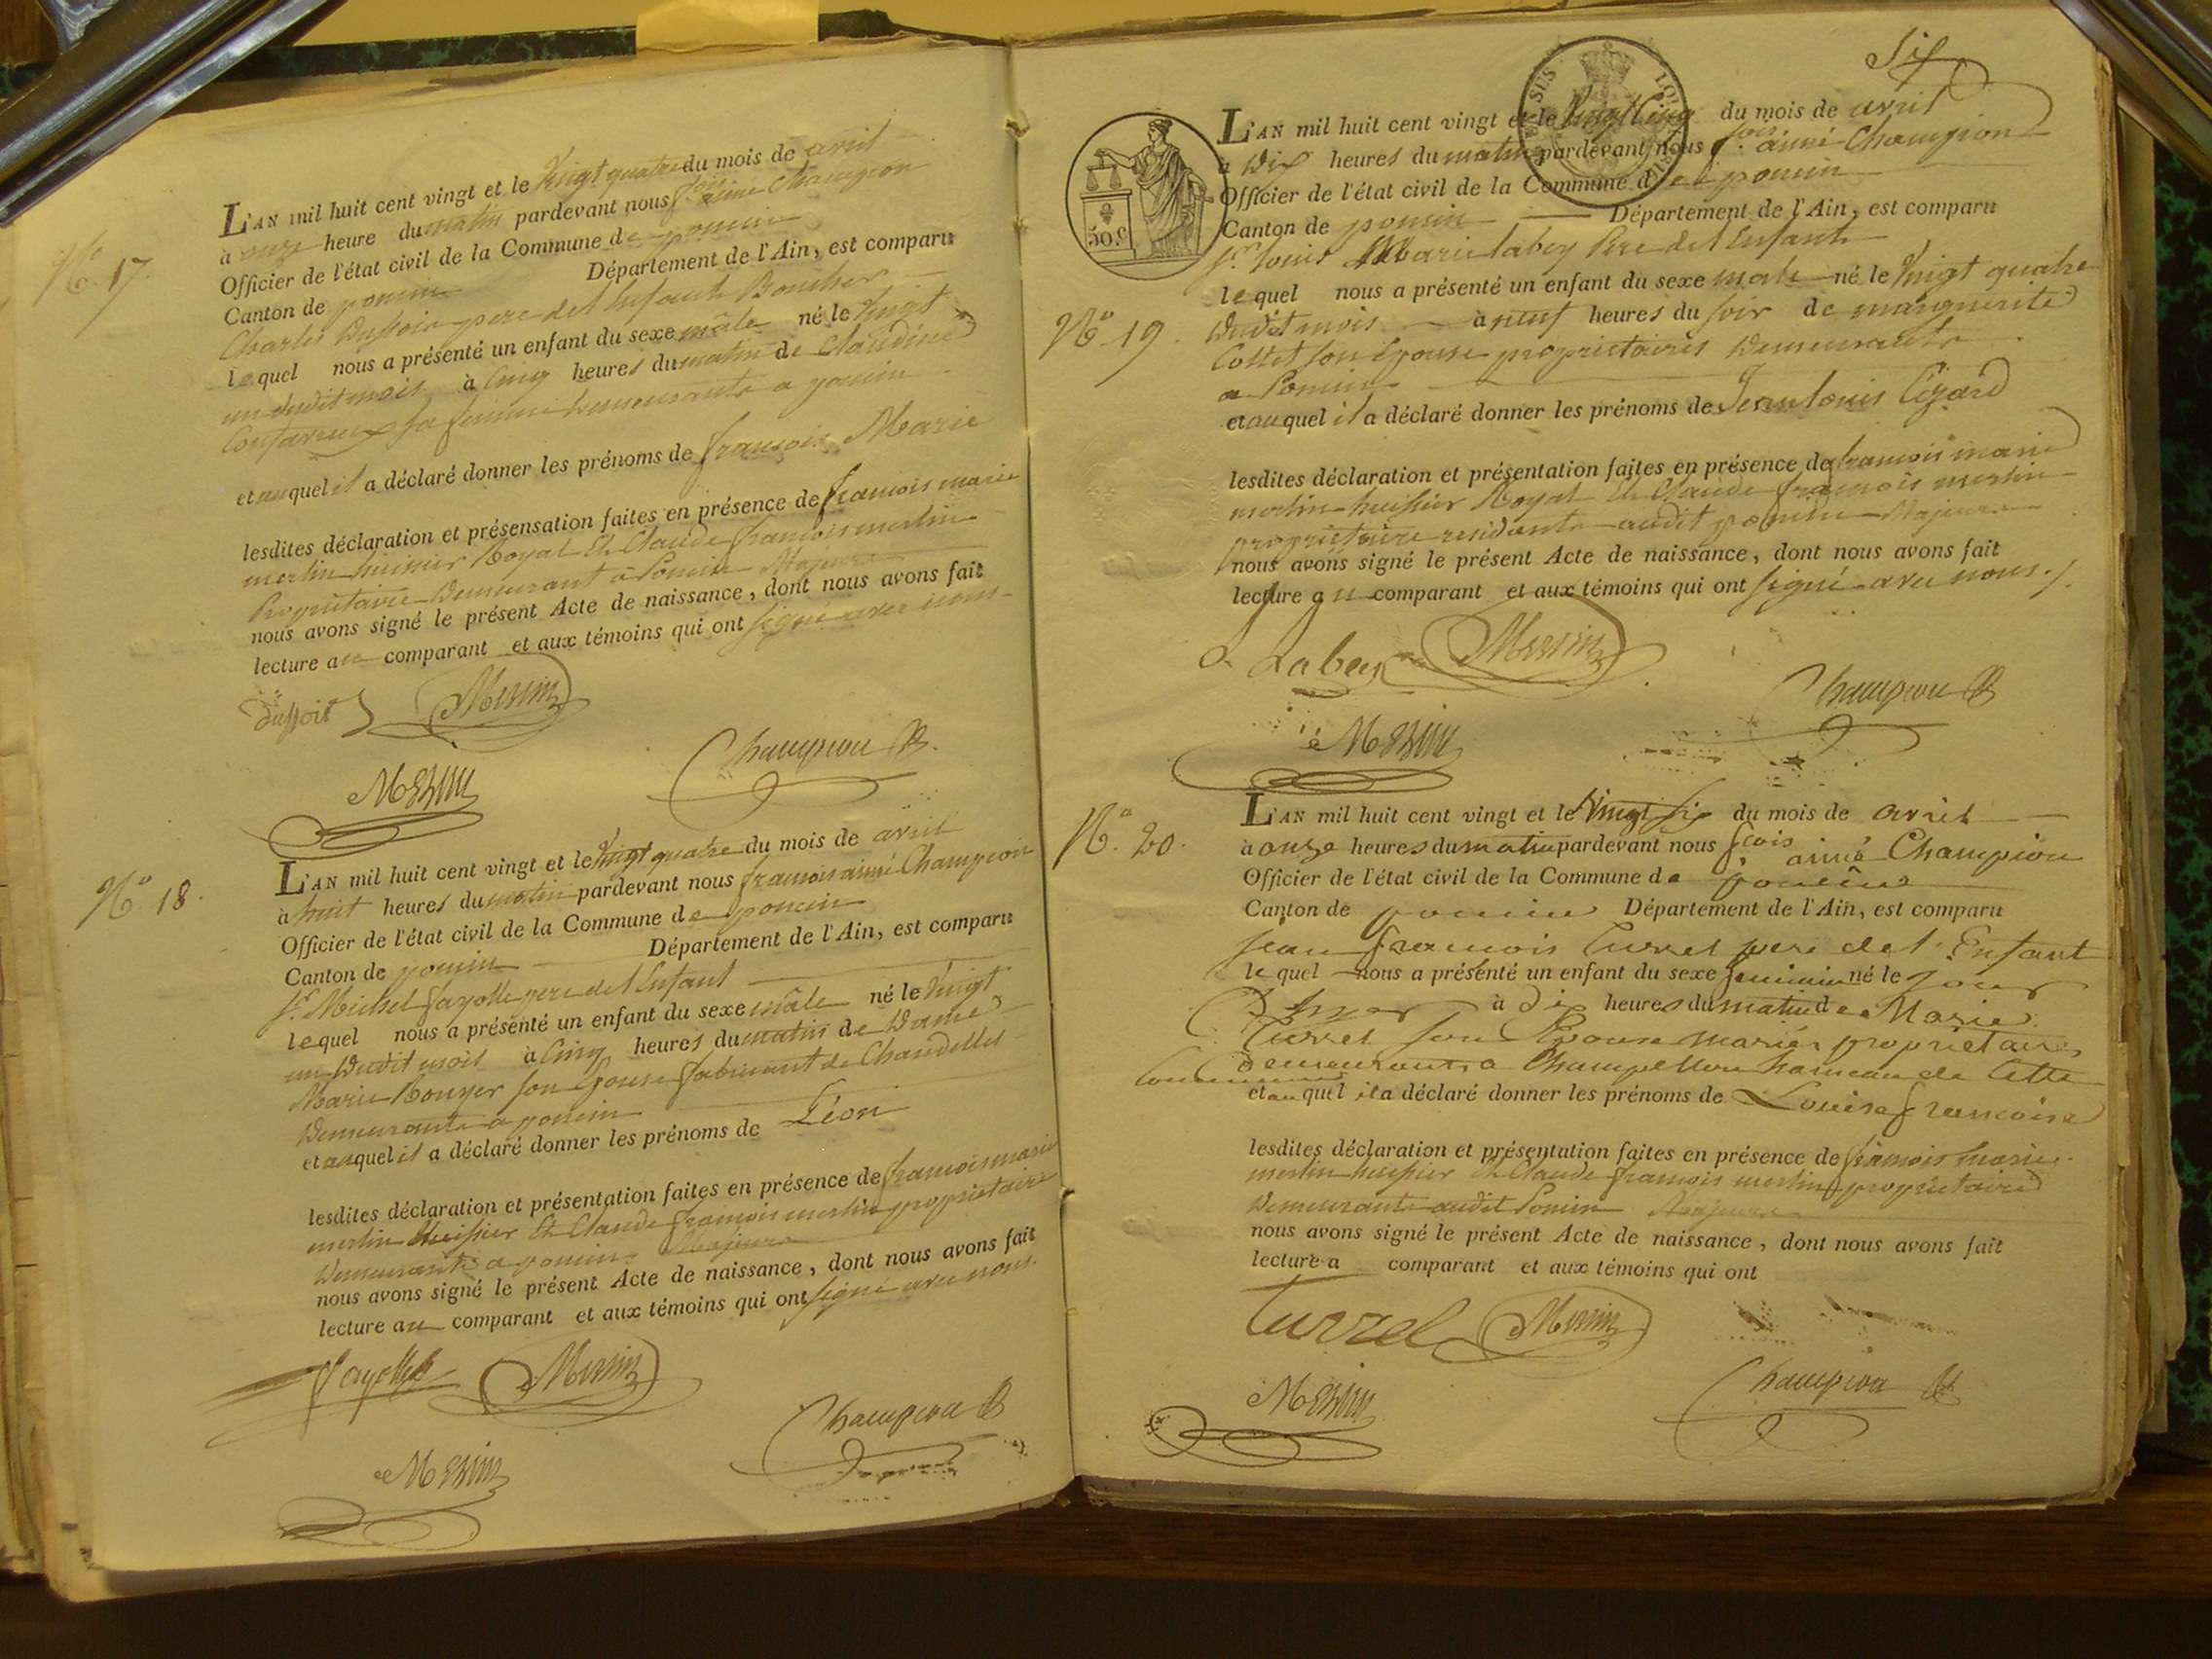 N.o 17.
L'AN mil huit cent vingt et le Vingt quatre du mois de avril
à onze heure du matin pardevant nous f.ois aimé Champion
Officier de l'état civil de la Commune de poncin
Canton de poncin Département de l'Ain, est comparu
Charles Dufroit pere de l'Enfant Boucher
lequel nous a présenté un enfant du sexe mâle né le Vingt
un dudit mois à Cinq heures du matin de Claudine
sa femme demeurants a poncin
et auquel il a déclaré donner les prénoms de françois Marie
lesdites déclaration et présensation faites en présence de françois marie
merlin huissier Royal Et Claude françois merlin
Propriétaire Demeurant a Poncin Majeurs
nous avons signé le présent Acte de naissance, dont nous avons fait
lecture au comparant et aux témoins qui ont signé avec nous
Merlin
Champion
Merlin
N.o 18.
L'AN mil huit cent vingt et le Vingt quatre du mois de avril
à huit heures du matin pardevant nous françois aimé Champion
Officier de l'état civil de la Commune de poncin
Canton de poncin Département de l'Ain, est comparu
S.r Michel fayolle pere de l'Enfant
lequel nous a présenté un enfant du sexe mâle né le Vingt
un Dudit mois à Cinq heures du matin de Dame
Marie Bouyer son Epouse fabricant de Chandelles
Demeurants a poncin
et auquel il a déclaré donner les prénoms de Léon
lesdites déclaration et présentation faites en présence de françois marie
merlin huissier Et Claude françois merlin propriétaire
Demeurants a poncin Majeurs
nous avons signé le présent Acte de naissance, dont nous avons fait
lecture au comparant et aux témoins qui ont signé avec nous.
fayolle Merlin
Champion
Merlin
Six
50 C
L'AN mil huit cent vingt et le Vingt Cinq du mois de avril
à Dix heures du matin pardevant nous f.ois aimé Champion
Officier de l'état civil de la Commune de poncin
Canton de poncin Département de l'Ain, est comparu
S.r Louis Marie labey Pere de l'Enfant
lequel nous a présenté un enfant du sexe male né le Vingt quatre
N.o 19.
Dudit mois à neuf heures du soir de marguerite
Cottet son Epouse proprietaires Demeurants
a Poncin
et auquel il a déclaré donner les prénoms de Jean louis Cézard
lesdites déclaration et présentation faites en présence de françois marie
merlin huissier Royal Et Claude françois merlin
propriétaire residants audit poncin Majeurs
nous avons signé le présent Acte de naissance, dont nous avons fait
lecture au comparant et aux témoins qui ont signé avec nous ./.
Labey Merlin
Champion
Merlin
N.o 20.
L'AN mil huit cent vingt et le Vingt Six du mois de avril
à onze heures du matin pardevant nous f.cois aimé Champion
Officier de l'état civil de la Commune de poncin
Canton de poncin Département de l'Ain, est comparu
jean françois Turrel pere de l'Enfant
lequel nous a présenté un enfant du sexe feminin né le jour
D'hyer à Dix heures du matin de Marie
Turrel son Epouse mariés propriétaires
Demeurants a Champellon hameau de Cette
Commune
et auquel il a déclaré donner les prénoms de Louise françoise
lesdites déclaration et présentation faites en présence de françois marie
merlin huissier Et Claude françois merlin propriétaire
Demeurants audit Poncin Majeurs
nous avons signé le présent Acte de naissance, dont nous avons fait
lecture a comparant et aux témoins qui ont
Turrel Merlin
Champion
Merlin